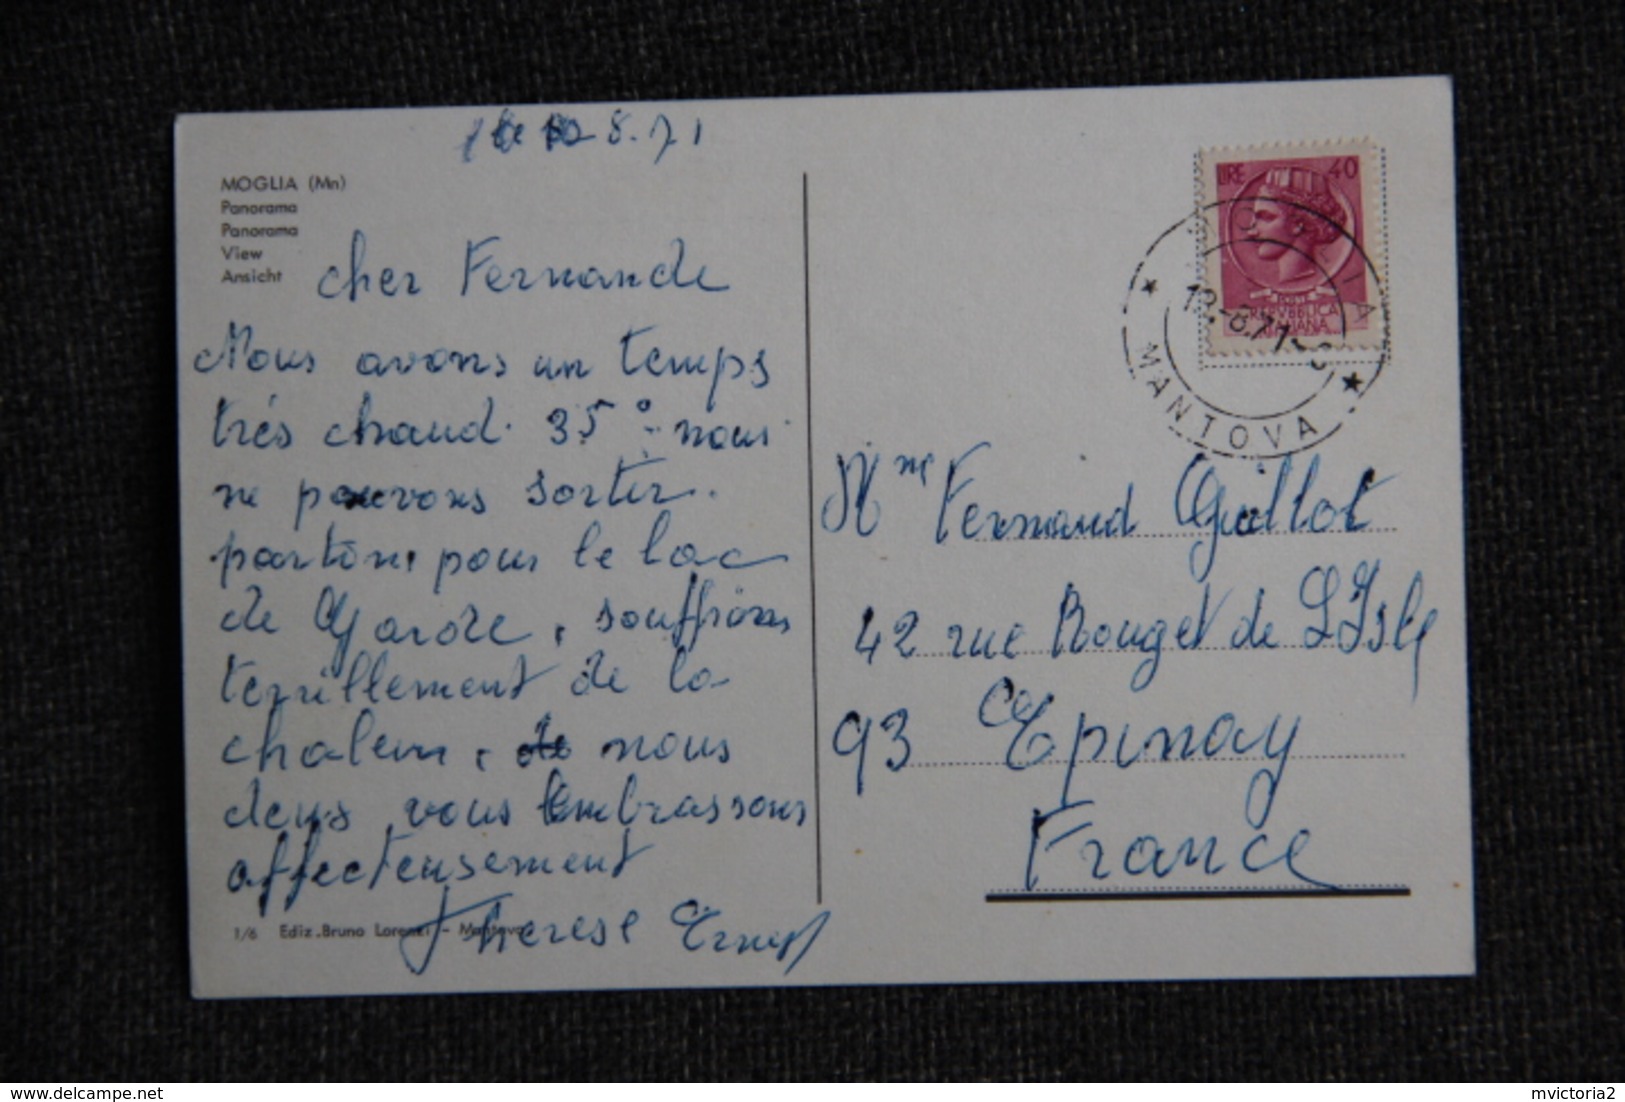 8.71
MOGLIA (Mn)
Panorama
Panorama
View
Ansicht
cher Fernande
Nous avons un temps
très chaud. 35° nous
ne pouvons sortir.
partons pour le lac
de Garde, souffrons
terrillement de la
chaleur, nous
deux vous embrassons
affecteusement
Therese Ernest
1/6 Ediz. Bruno Lorenzi - Mantova
LIRE 40
POSTE
REPVBBLICA
ITALIANA
MOGLIA
MANTOVA
Mme Fernand Guillot
42 rue Rouget de L'Isle
93 Epinay
France
delcampe.net
mvictoria2